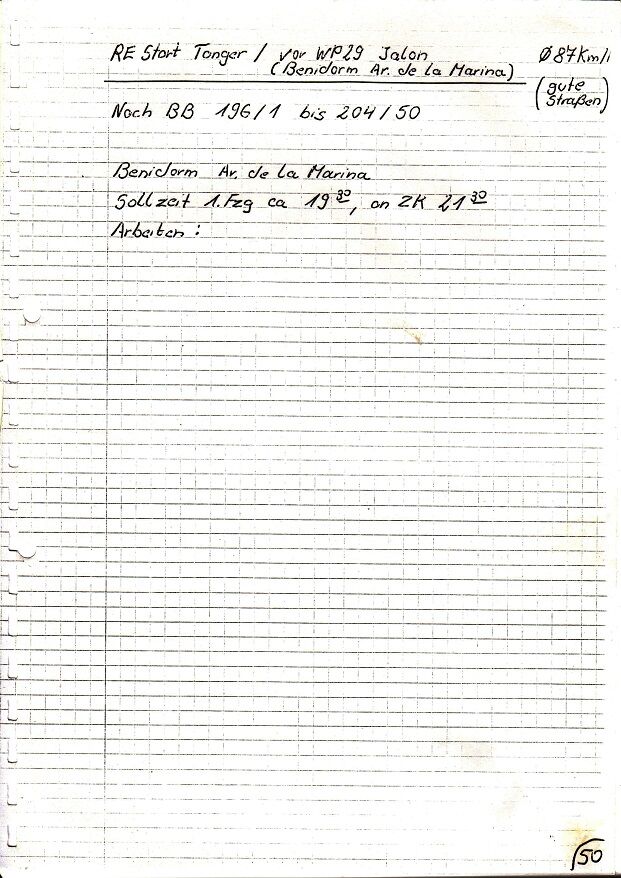 RE Start Tanger / vor WP29 Jalon Ø 87 Km/
(Benidorm Av. de la Marina)
(gute Straßen)
Nach BB 196/1 bis 204/50
Benidorm Av. de la Marina
Sollzeit 1. Fzg ca 19 30, an ZK 21 30
Arbeiten :
50